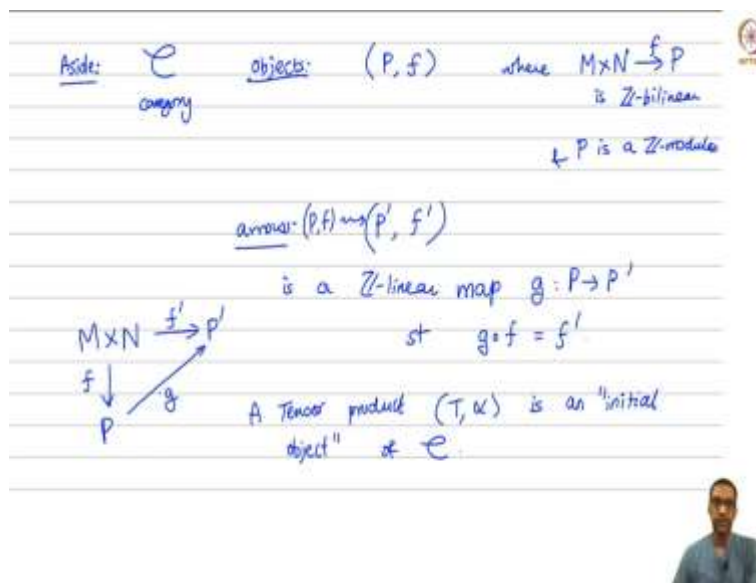 Aside: C objects: (P, f) where M×N →f P
category is ℤ-bilinear
& P is a ℤ-module
arrows: (P,f) ⇝ (P', f')
is a ℤ-linear map g : P → P'
M×N →f' P' st g∘f = f'
f ↓ g
P A Tensor product (T, α) is an "initial
object" of C.